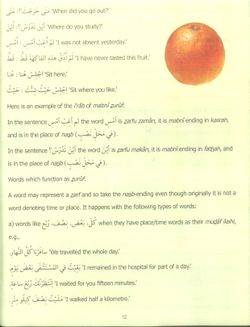 مَتَى خَرَجْتَ؟: مَتَى 'When did you go out?'
أَيْنَ تَدْرُسُ؟: أَيْنَ 'Where do you study?'
لَمْ أَغِبْ أَمْسِ: أَمْسِ 'I was not absent yesterday.'
لَمْ أَذُقْ هَذِهِ الْفَاكِهَةَ قَطُّ: قَطُّ 'I have never tasted this fruit.'
اِجْلِسْ هُنَا: هُنَا 'Sit here,'
اِجْلِسْ حَيْثُ شِئْتَ: حَيْثُ 'Sit where you like.'
Here is an example of the i'rāb of mabnī ẓurūf:
In the sentence لَمْ أَغِبْ أَمْسِ the word أَمْسِ is ẓarfu zamān, it is mabnī ending in kasrah,
and is in the place of naṣb (فِي مَحَلِّ نَصْبٍ).
In the sentence أَيْنَ تَدْرُسُ؟ the word أَيْنَ is ẓarfu makān, it is mabnī ending in fatḥah, and
is in the place of naṣb (فِي مَحَلِّ نَصْبٍ).
Words which function as ẓurūf:
A word may represent a ẓarf and so take the naṣb-ending even though originally it is not a
word denoting time or place. It happens with the following types of words:
a) words like كُلّ، بَعْض، نِصْف، رُبْع when they have place/time words as their muḍāf ilaihi,
e.g.,
سَافَرْنَا كُلَّ النَّهَارِ. 'We travelled the whole day.'
بَقِيتُ فِي الْمُسْتَشْفَى بَعْضَ يَوْمٍ. 'I remained in the hospital for part of a day.'
اِنْتَظَرْتُكَ رُبْعَ سَاعَةٍ. 'I waited for you fifteen minutes.'
مَشَيْتُ نِصْفَ كِيلُو مِتْرٍ. 'I walked half a kilometre.'
12